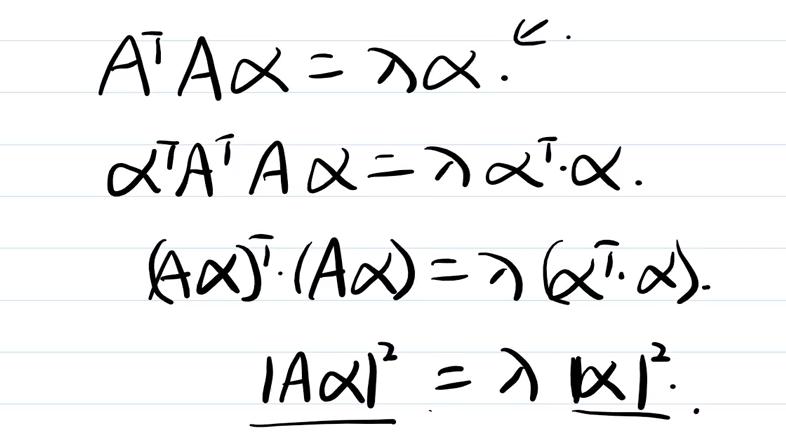 AᵀAα = λα.
αᵀAᵀAα = λαᵀ·α.
(Aα)ᵀ·(Aα) = λ(αᵀ·α).
|Aα|² = λ|α|².